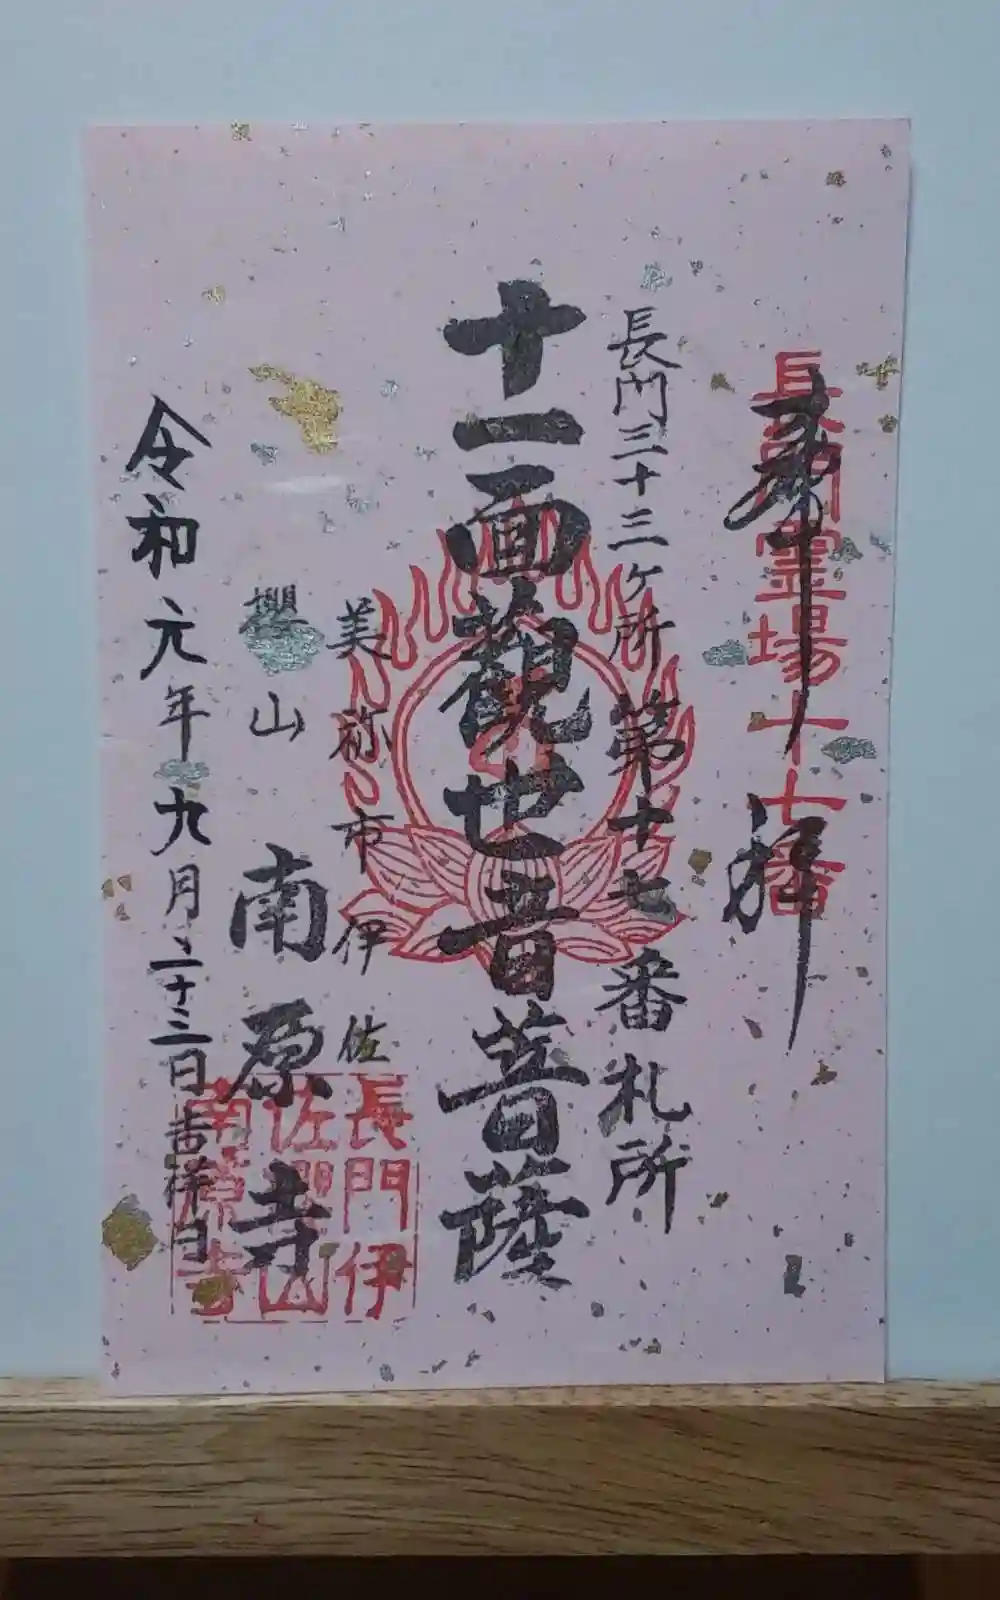 長門霊場十七番
奉拝
長門三十三ヶ所第十七番札所
十一面観世音菩薩
美祢市伊佐
櫻山南原寺
長門伊
佐櫻山
南原寺
令和元年九月二十三日吉祥日